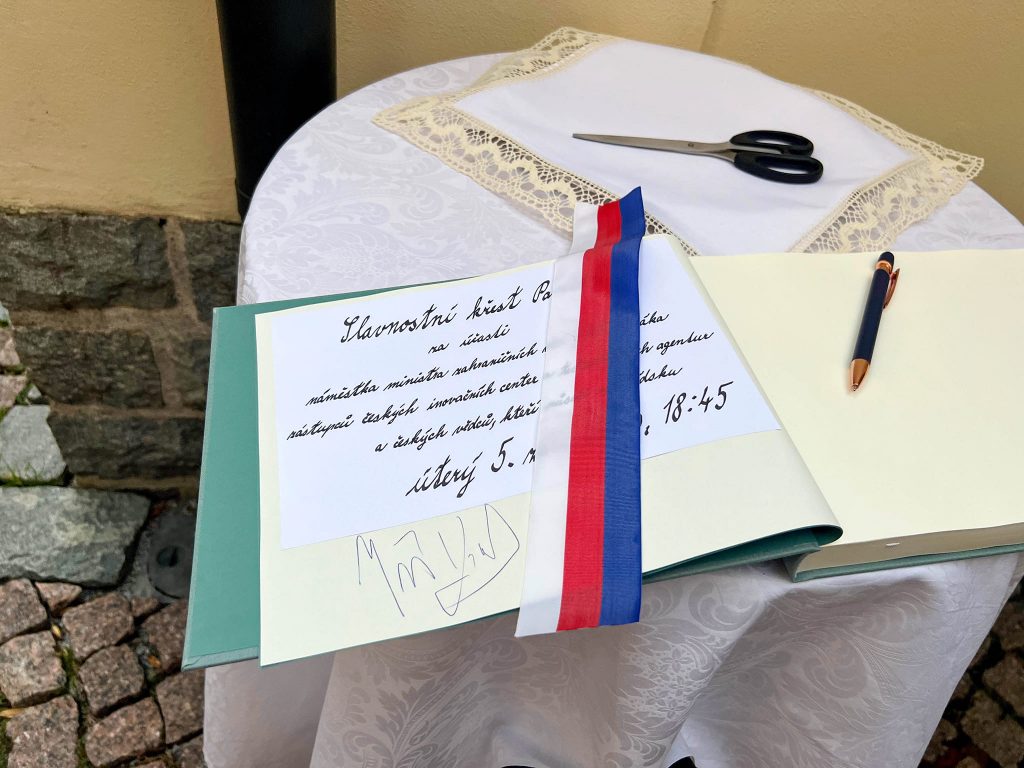 Slavnostní křest Pa áka
za účasti
náměstka ministra zahraničních ch agentur
zástupců českých inovačních center a
a českých vědců, kteří
úterý 5. 18:45